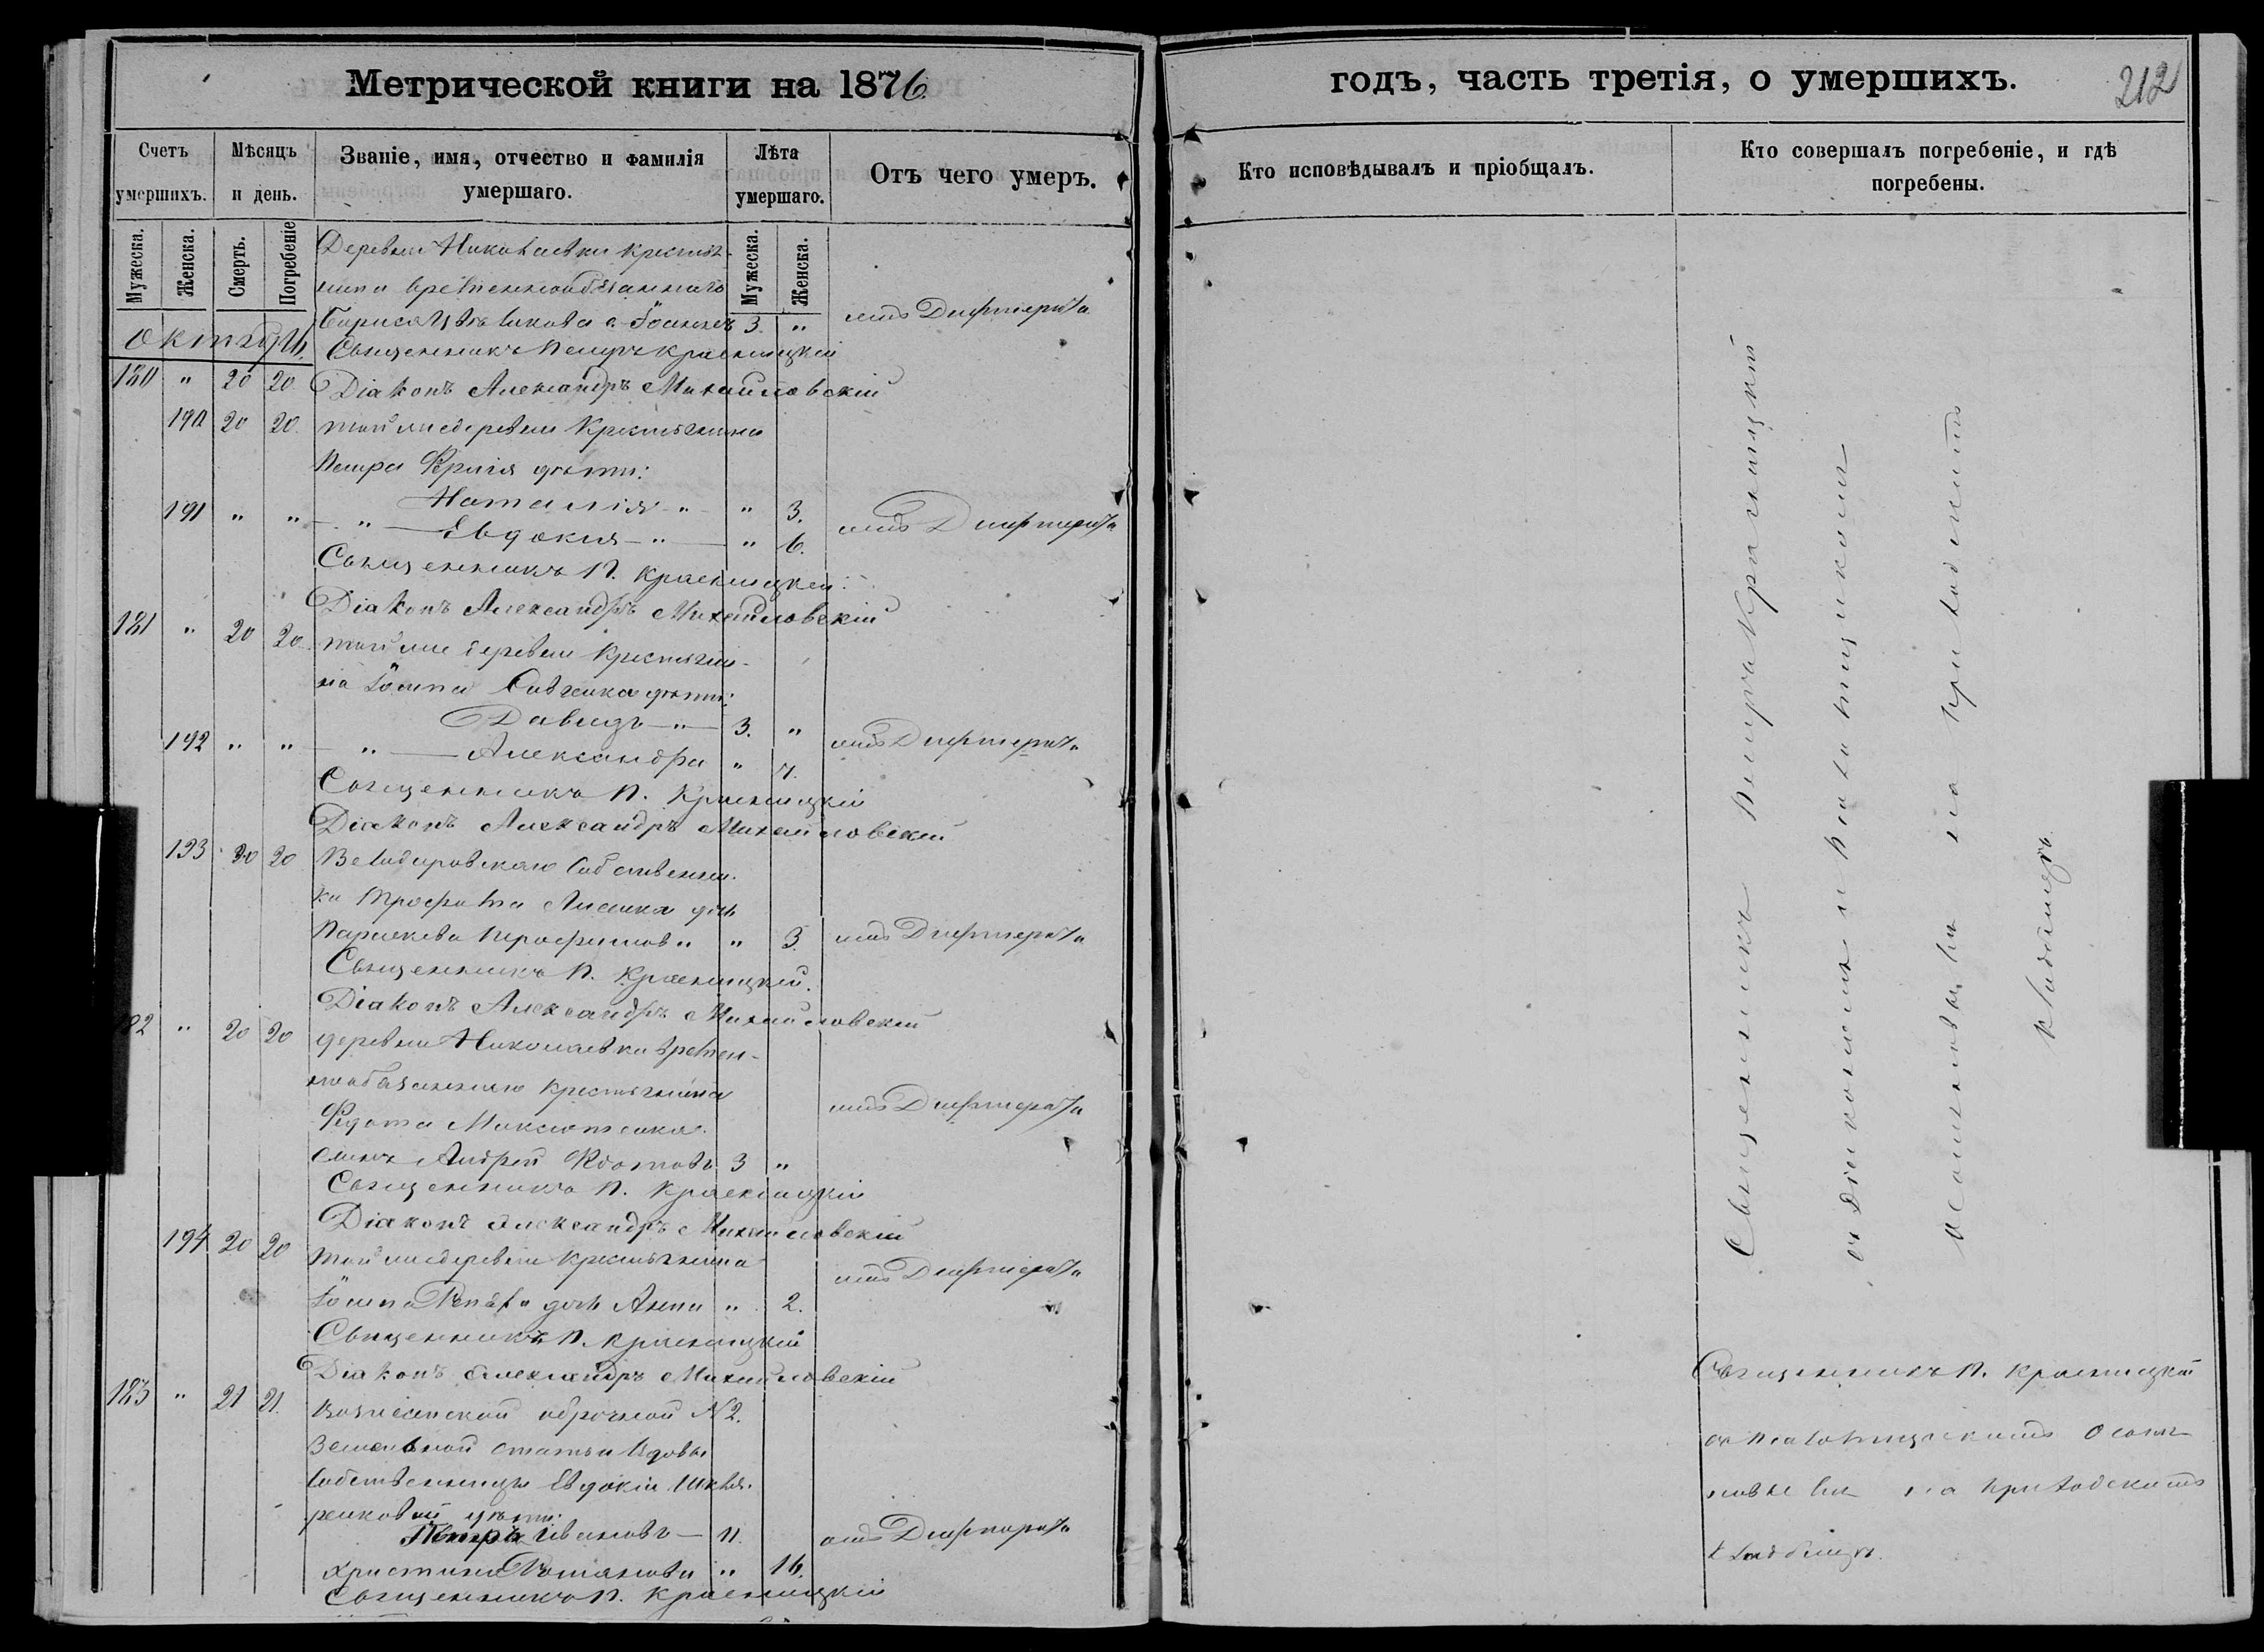 Метрической книги на 1876
годъ, часть третія, о умершихъ.
212
Счетъ умершихъ.
Мѣсяцъ и день.
Званіе, имя, отчество и фамилія умершаго.
Лѣта умершаго.
Отъ чего умеръ.
Кто исповѣдывалъ и пріобщалъ.
Кто совершалъ погребеніе, и гдѣ погребены.
Мужеска.
Женска.
Смерть.
Погребеніе
Мужеска.
Женска.
Деревни Николаевки крестья-
нина временнообязаннаго
Бориса сынъ Іоаннъ 3. " отъ Дифтерита
Октябрь
Священникъ Петръ Красницкій
180 " 20 20 Діаконъ Александръ Михайловскій
190 20 20. той же деревни Крестьянина
Петра дѣти:
Наталія " " 3.
191 " " " Евдокия " " 6. отъ Дифтерита
Священникъ П. Красницкій.
Діаконъ Александръ Михайловскій
181 " 20 20 той же деревни Крестьяни-
на Іоанна Савченка дѣти:
Давидъ " 3. "
192 " " " Александра " 7. отъ Дифтерита
Священникъ П. Красницкій
Діаконъ Александръ Михайловскій
193 20 20 Собственни-
ка Трофима Лисенка дочь
Параскева Трофимов " " 3. отъ Дифтерита
Священникъ П. Красницкій.
Діаконъ Александръ Михайловскій
182 " 20 20 деревни Николаевки времен-
нообязаннаго крестьянина
Федота отъ Дифтерита
сынъ Андрей Федотовъ 3 "
Священникъ П. Красницкій
Діаконъ Александръ Михайловскій
194 20 20 той же деревни крестьянина
Іоанна дочь Анна " 2. отъ Дифтерита
Священникъ П. Красницкій
Діаконъ Александръ Михайловскій
183 " 21 21. Вознесенской оброчной №2.
Земельной статьи Вдовы
Собственницы Евдокіи
дѣти:
Петръ Ивановъ 11. отъ Дифтерита
Христина Романова " 16.
Священникъ П. Красницкій
Священникъ Петръ Красницкій
съ діакономъ и
на приходскомъ
кладбищѣ
Священникъ П. Красницкій
съ
на приходскомъ
кладбищѣ.